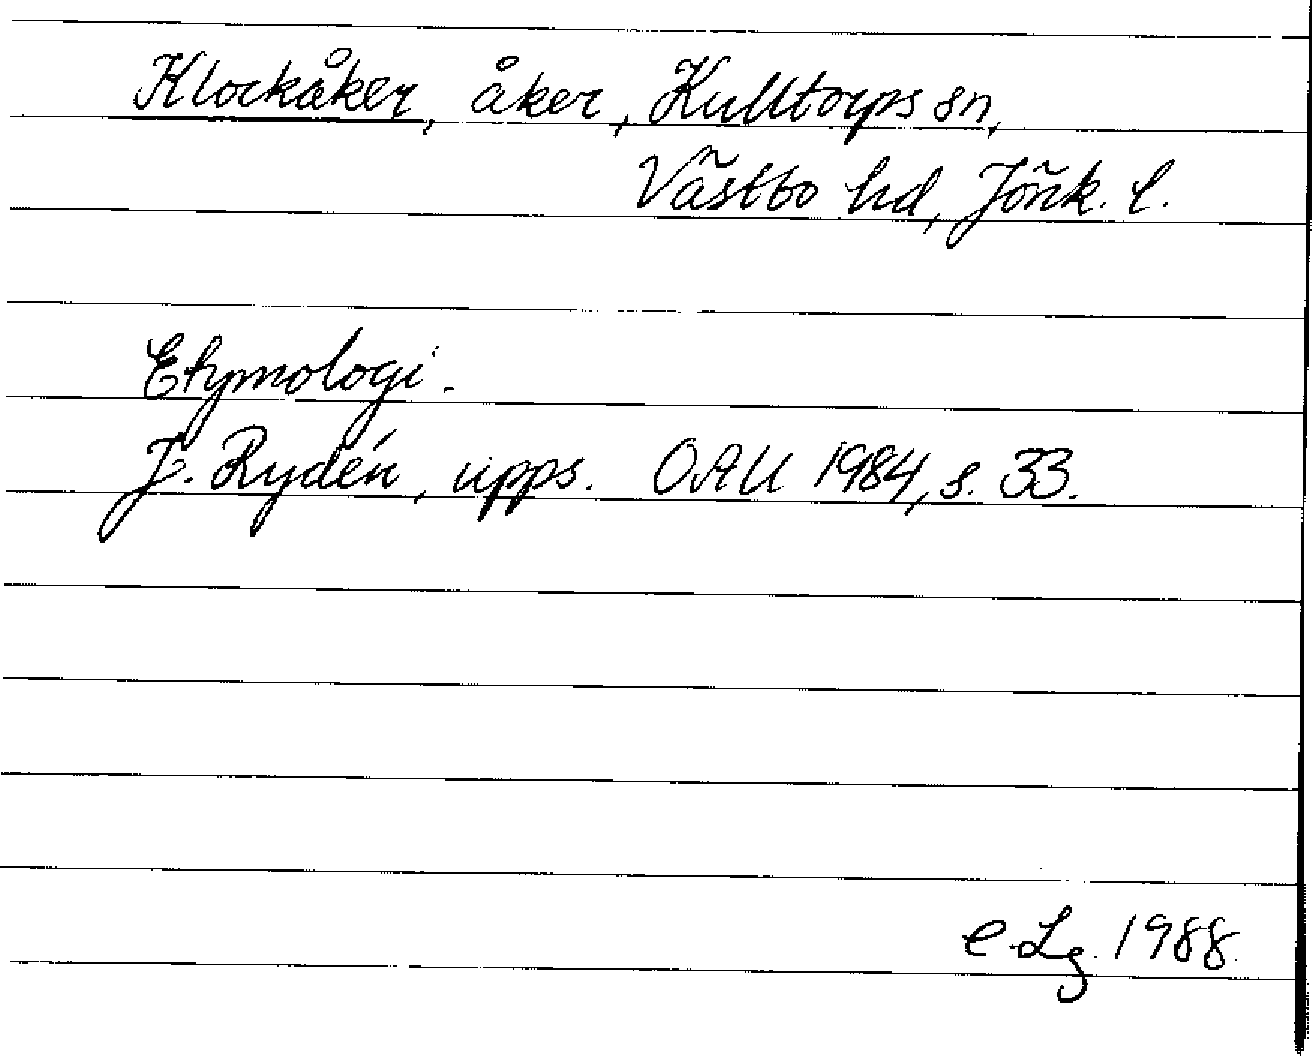 Klockåker, åker, Kulltorps sn,
Västbo hd, Jönk. l.
Etymologi.
J. Rydén, upps. OAU 1984, s. 33.
e. Lg. 1988.